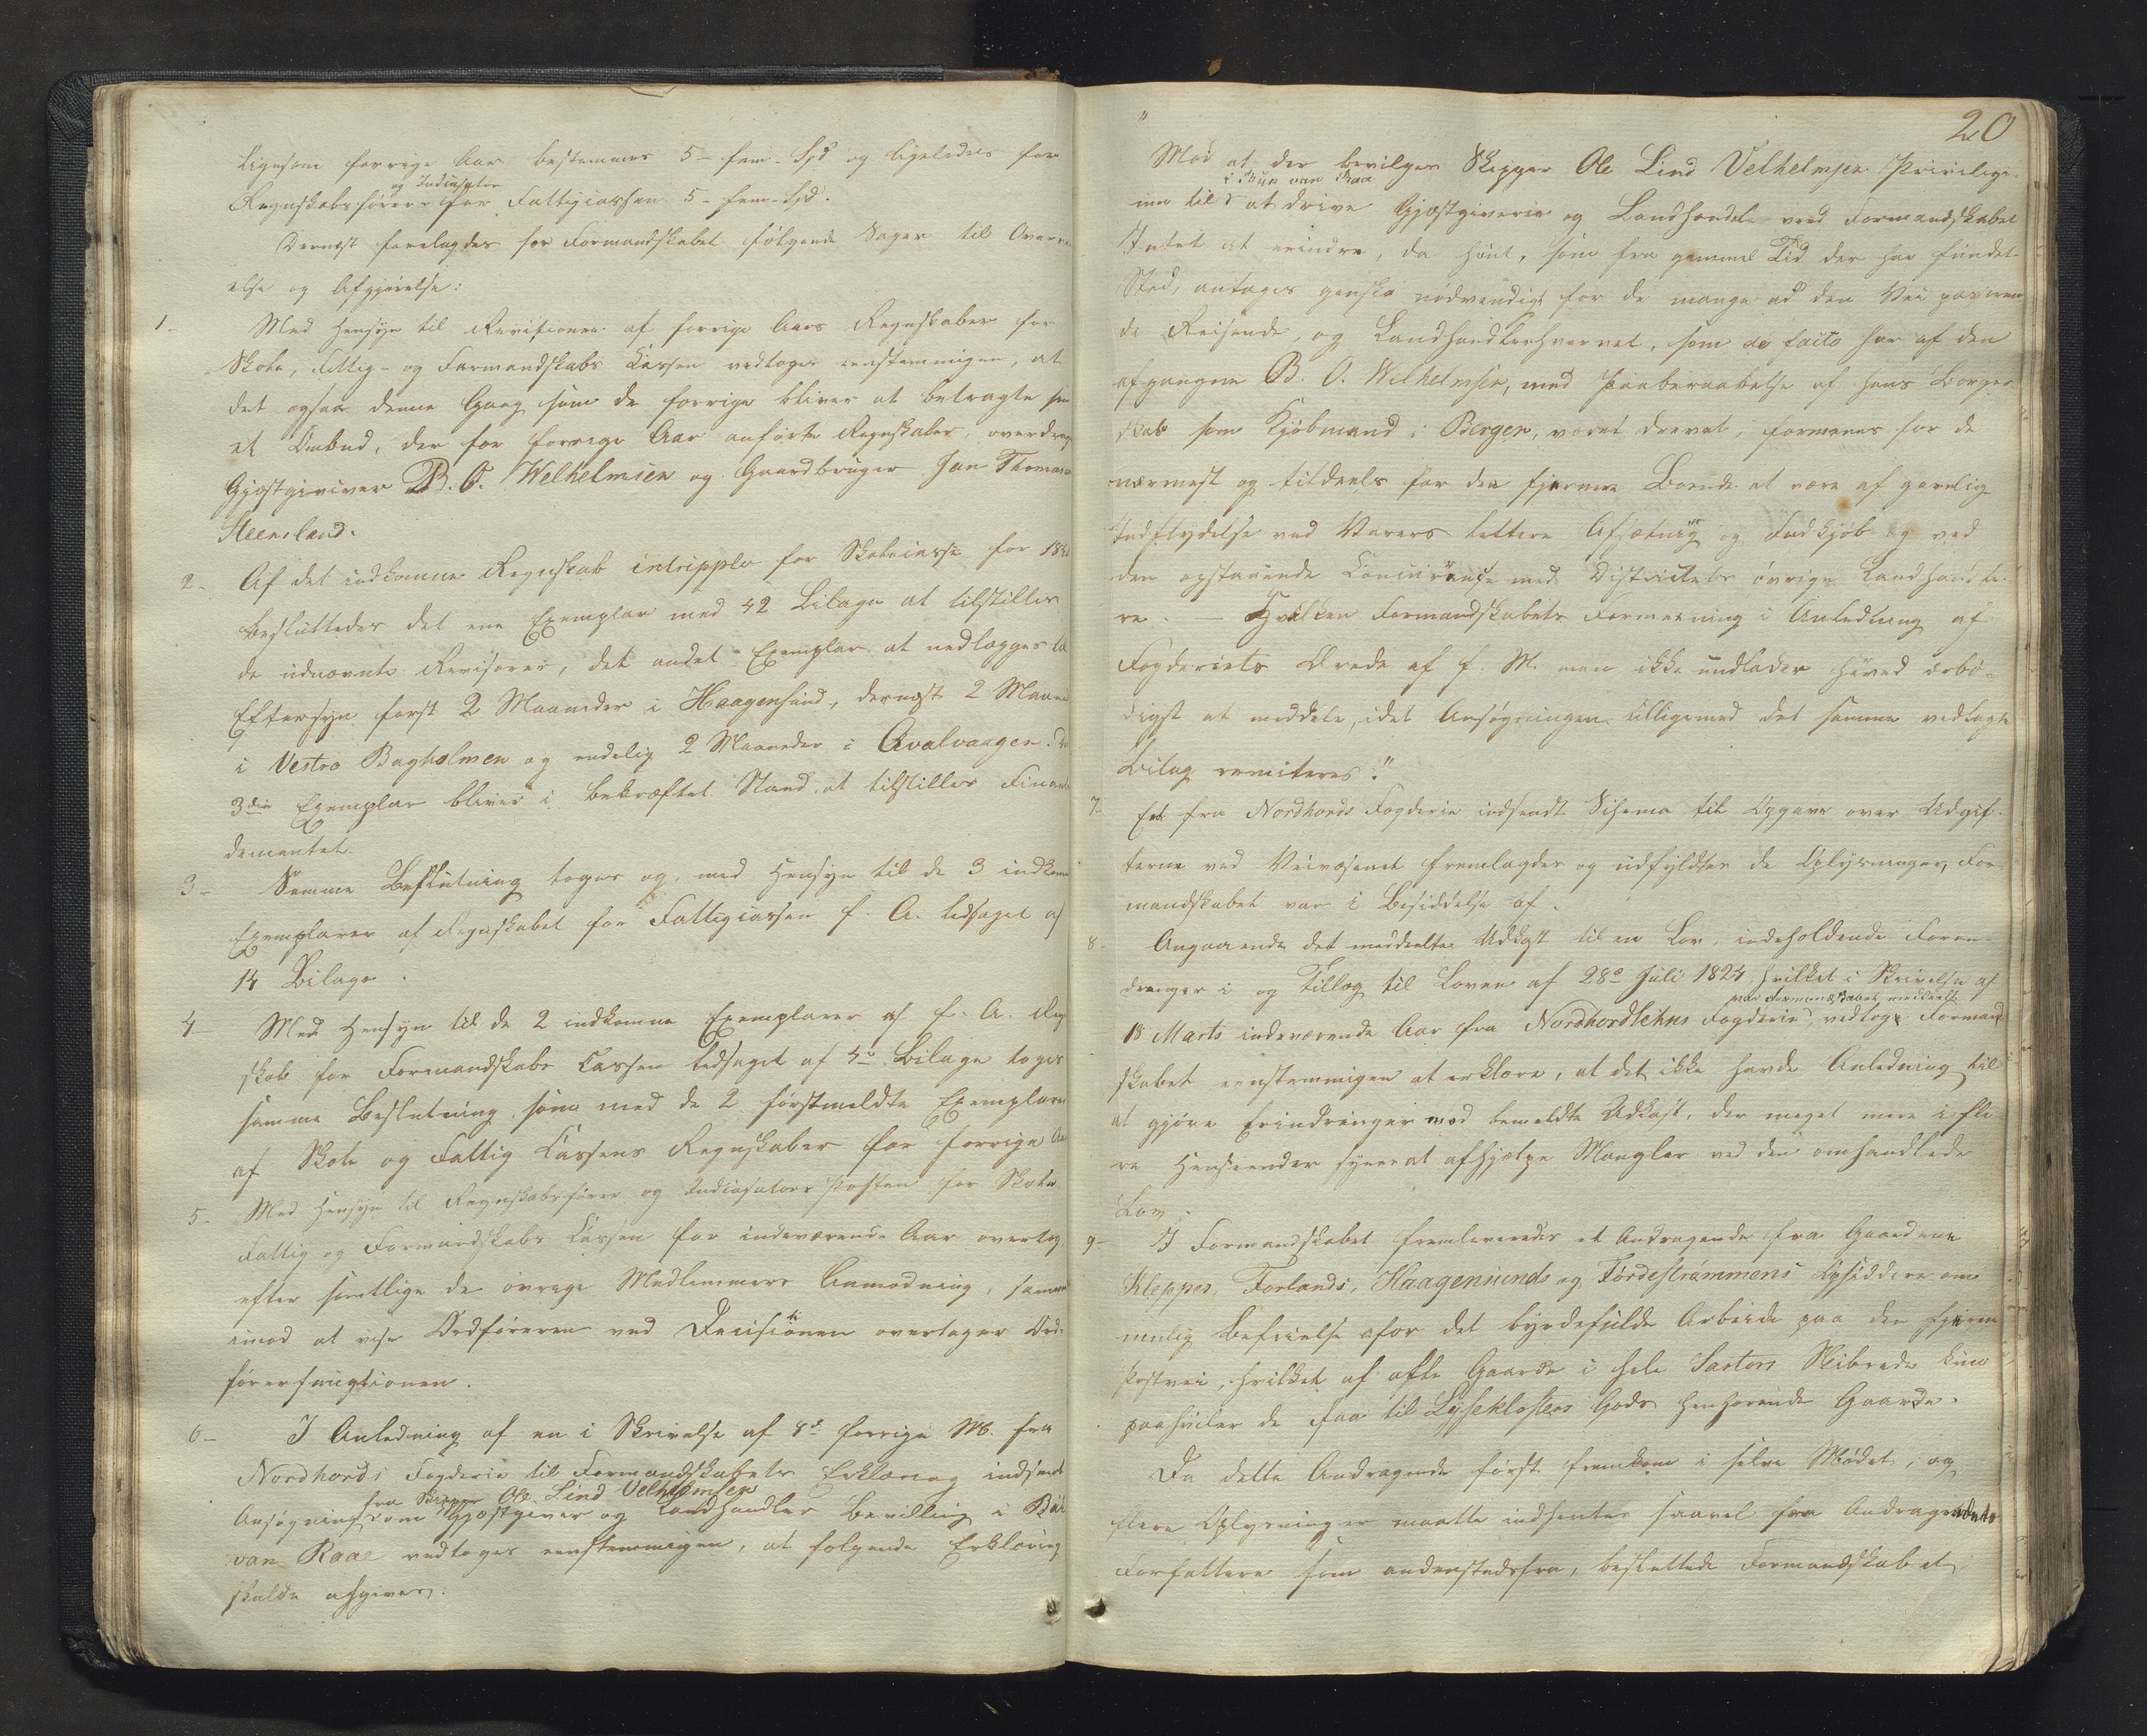 ligesom forrige Aar bestemmes 5 - fem - Spd og ligeledes for
og Indcasator
Regnskabsfører for Fattigcassen 5 - fem - Spd.
Dernæst forelagdes for Formandskabet følgende Sager til Overvei
else og Afgjørelse:
1- Med Hensyn til Revisionen af forrige Aars Regnskaber for
Skole, Fattig- og Formandskabs Cassen vedtoges eenstemmigen, at
det ogsaa denne Gang som de forrige bliver at betragte som
et Ombud, der for forrige Aar anførte Regnskaber, overdrages
Gjæstgiver B. O. Welhelmsen og Gaardbruger Jan Thomasen
Steensland.
2- Af det indkomne Regnskab in tripplo for Skolecassen for 184
besluttedes det ene Exemplar med 42 Bilage at tilstilles
de udnævnte Revisorer, det andet Exemplar at nedlægges til
Eftersyn først 2 Maaneder i Haagensund, dernæst 2 Maaneder
i Vestre Bagholmen og endelig 2 Maaneder i Qvalvaagen. Det
3die Exemplar bliver i bekræftet Stand at tilstilles Finants
dementet.
3- Samme Beslutning toges og, med Hensyn til de 3 indkomne
Exemplarer af Regnskabet for Fattigcassen f. A. ledsaget af
14 Bilage.
4- Med Hensyn til de 2 indkomne Exemplarer af f. A. Regn
skab for Formandskabs Cassen ledsaget af Bilage toges
samme Beslutning som med de 2 førstmeldte Exemplarer
af Skole og Fattig Cassens Regnskaber for forrige Aar
5- Med Hensyn til Regnskabsfører og Indcasators Posten for Skole
Fattig og Formandskabs Cassen for indeværende Aar overtog,
efter samtlige de øvrige Medlemmers Anmodning, samme
imod at vise Ordføreren ved Decisionen overtager Ord-
førerfunctionen.
6- I Anledning af en i Skrivelse af 8de forrige M. fra
Nordhords Fogderie til Formandskabets Erklæring indsendt
fra Skipper Ole Lind Velhelmsen
Ansøgning om Gjæstgiver og Landhandler Bevilling i Bu
van Raae vedtoges eenstemmigen, at følgende Erklæring
skulde afgives:
20
"Mod at der bevilges Skipper Ole Lind Velhelmsen Privilegi-
i Bue van Raae
um til at drive Gjæstgiverie og Landhandel veed Formandskabet
Intet at erindre, da hiint, som fra gammel Tid der har fundet
Sted, antages ganske nødvendigt for de mange ad den Vei passeren
de Reisende, og Landhandlerhvervet, som de facto har af den
afgangne B. O. Welhelmsen, med Paaberaabelse af hans Borger
skab som Kjøbmand i Bergen, været drevet, formenes for de
nærmest og tildeels for den fjernere Boende at være af gavnlig
Indflydelse ved Varers lettere Afsætning og Indkjøb og ved
den opstaaende Concurrence med Districtets øvrige Landhandle-
re. - Hvilken Formandskabets Formening i Anledning af
Fogderiets Ærede af f. M. man ikke undlader herved ærbø-
digst at meddele, idet Ansøgningen tilligemed det samme vedlagte
Bilag remiteres."
7- Et fra Nordhords Fogderie indsendt Schema til Opgave over Udgif-
terne ved Veivæsenet fremlagdes og udfyldtes de Oplysninger, For-
mandskabet var i Besiddelse af.
8- Angaaende det meddeelte Udkast til en Lov, indeholdende Foran-
dringer i og Tillæg til Loven af 28de Juli 1824 hvilket i Skrivelse af
var Formandskabet meddeelt
18 Marts indeværende Aar fra Nordhordlehns Fogderie, vedtog Formand
skabet eenstemmigen at erklære, at det ikke havde Anledning til
at gjøre Erindringer mod bemeldte Udkast, der meget mere i fle-
re Henseender synes at afhjælpe Mangler ved den omhandlede
Lov.
9- I Formandskabet fremleveredes et Andragende fra Gaardene
Kleppes, Forlands, Haagensunds og Førdestrømmens Opsiddere om
mulig Befrielse for det byrdefulde Arbeide paa den fjerne
Postvei, hvilket af alle Gaarde i hele Sartors Skibrede kun
paahviler de faa til Lysekloster Gods henhørende Gaarde.
Da dette Andragende først fremkom i selve Mødet, og
flere Oplysninger maatte indhentes saavel fra Andragendets
Forfattere som andenstedsfra, besluttede Formandskabet